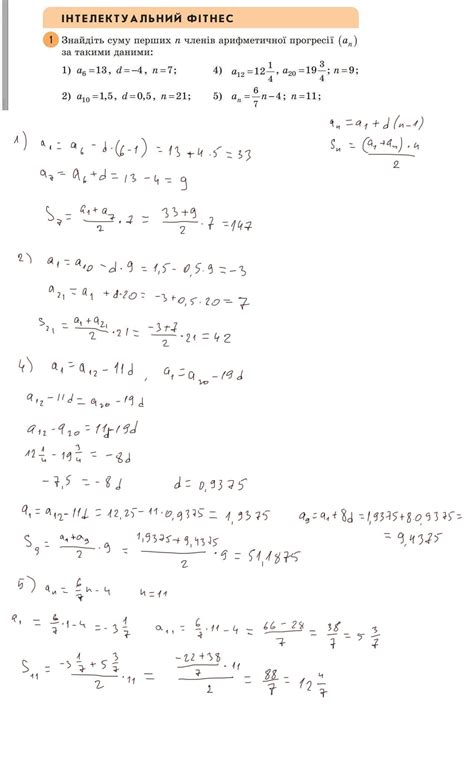 ІНТЕЛЕКТУАЛЬНИЙ ФІТНЕС
1 Знайдіть суму перших n членів арифметичної прогресії (aₙ)
за такими даними:
1) a₆=13, d=−4, n=7;
4) a₁₂=12 1/4, a₂₀=19 3/4; n=9;
2) a₁₀=1,5, d=0,5, n=21;
5) aₙ=6/7n−4; n=11;
aₙ=a₁+d(n−1)
Sₙ=(a₁+aₙ)·n/2
1) a₁=a₆−d·(6−1)=13+4·5=33
a₇=a₆+d=13−4=9
S₇=a₁+a₇/2·7=33+9/2·7=147
2) a₁=a₁₀−d·9=1,5−0,5·9=−3
a₂₁=a₁+d·20=−3+0,5·20=7
S₂₁=a₁+a₂₁/2·21=−3+7/2·21=42
4) a₁=a₁₂−11d, a₁=a₂₀−19d
a₁₂−11d=a₂₀−19d
a₁₂−a₂₀=11d−19d
12 1/4−19 3/4=−8d
−7,5=−8d d=0,9375
a₁=a₁₂−11d=12,25−11·0,9375=1,9375 a₉=a₁+8d=1,9375+8·0,9375=
=9,4375
S₉=a₁+a₉/2·9=1,9375+9,4375/2·9=51,1875
5) aₙ=6/7n−4 n=11
a₁=6/7·1−4=−3 1/7 a₁₁=6/7·11−4=66−28/7=38/7=5 3/7
S₁₁=−3 1/7+5 3/7/2·11=−22+38/7/2·11=88/7=12 4/7